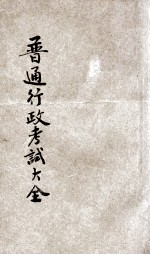 普通行政考試大全